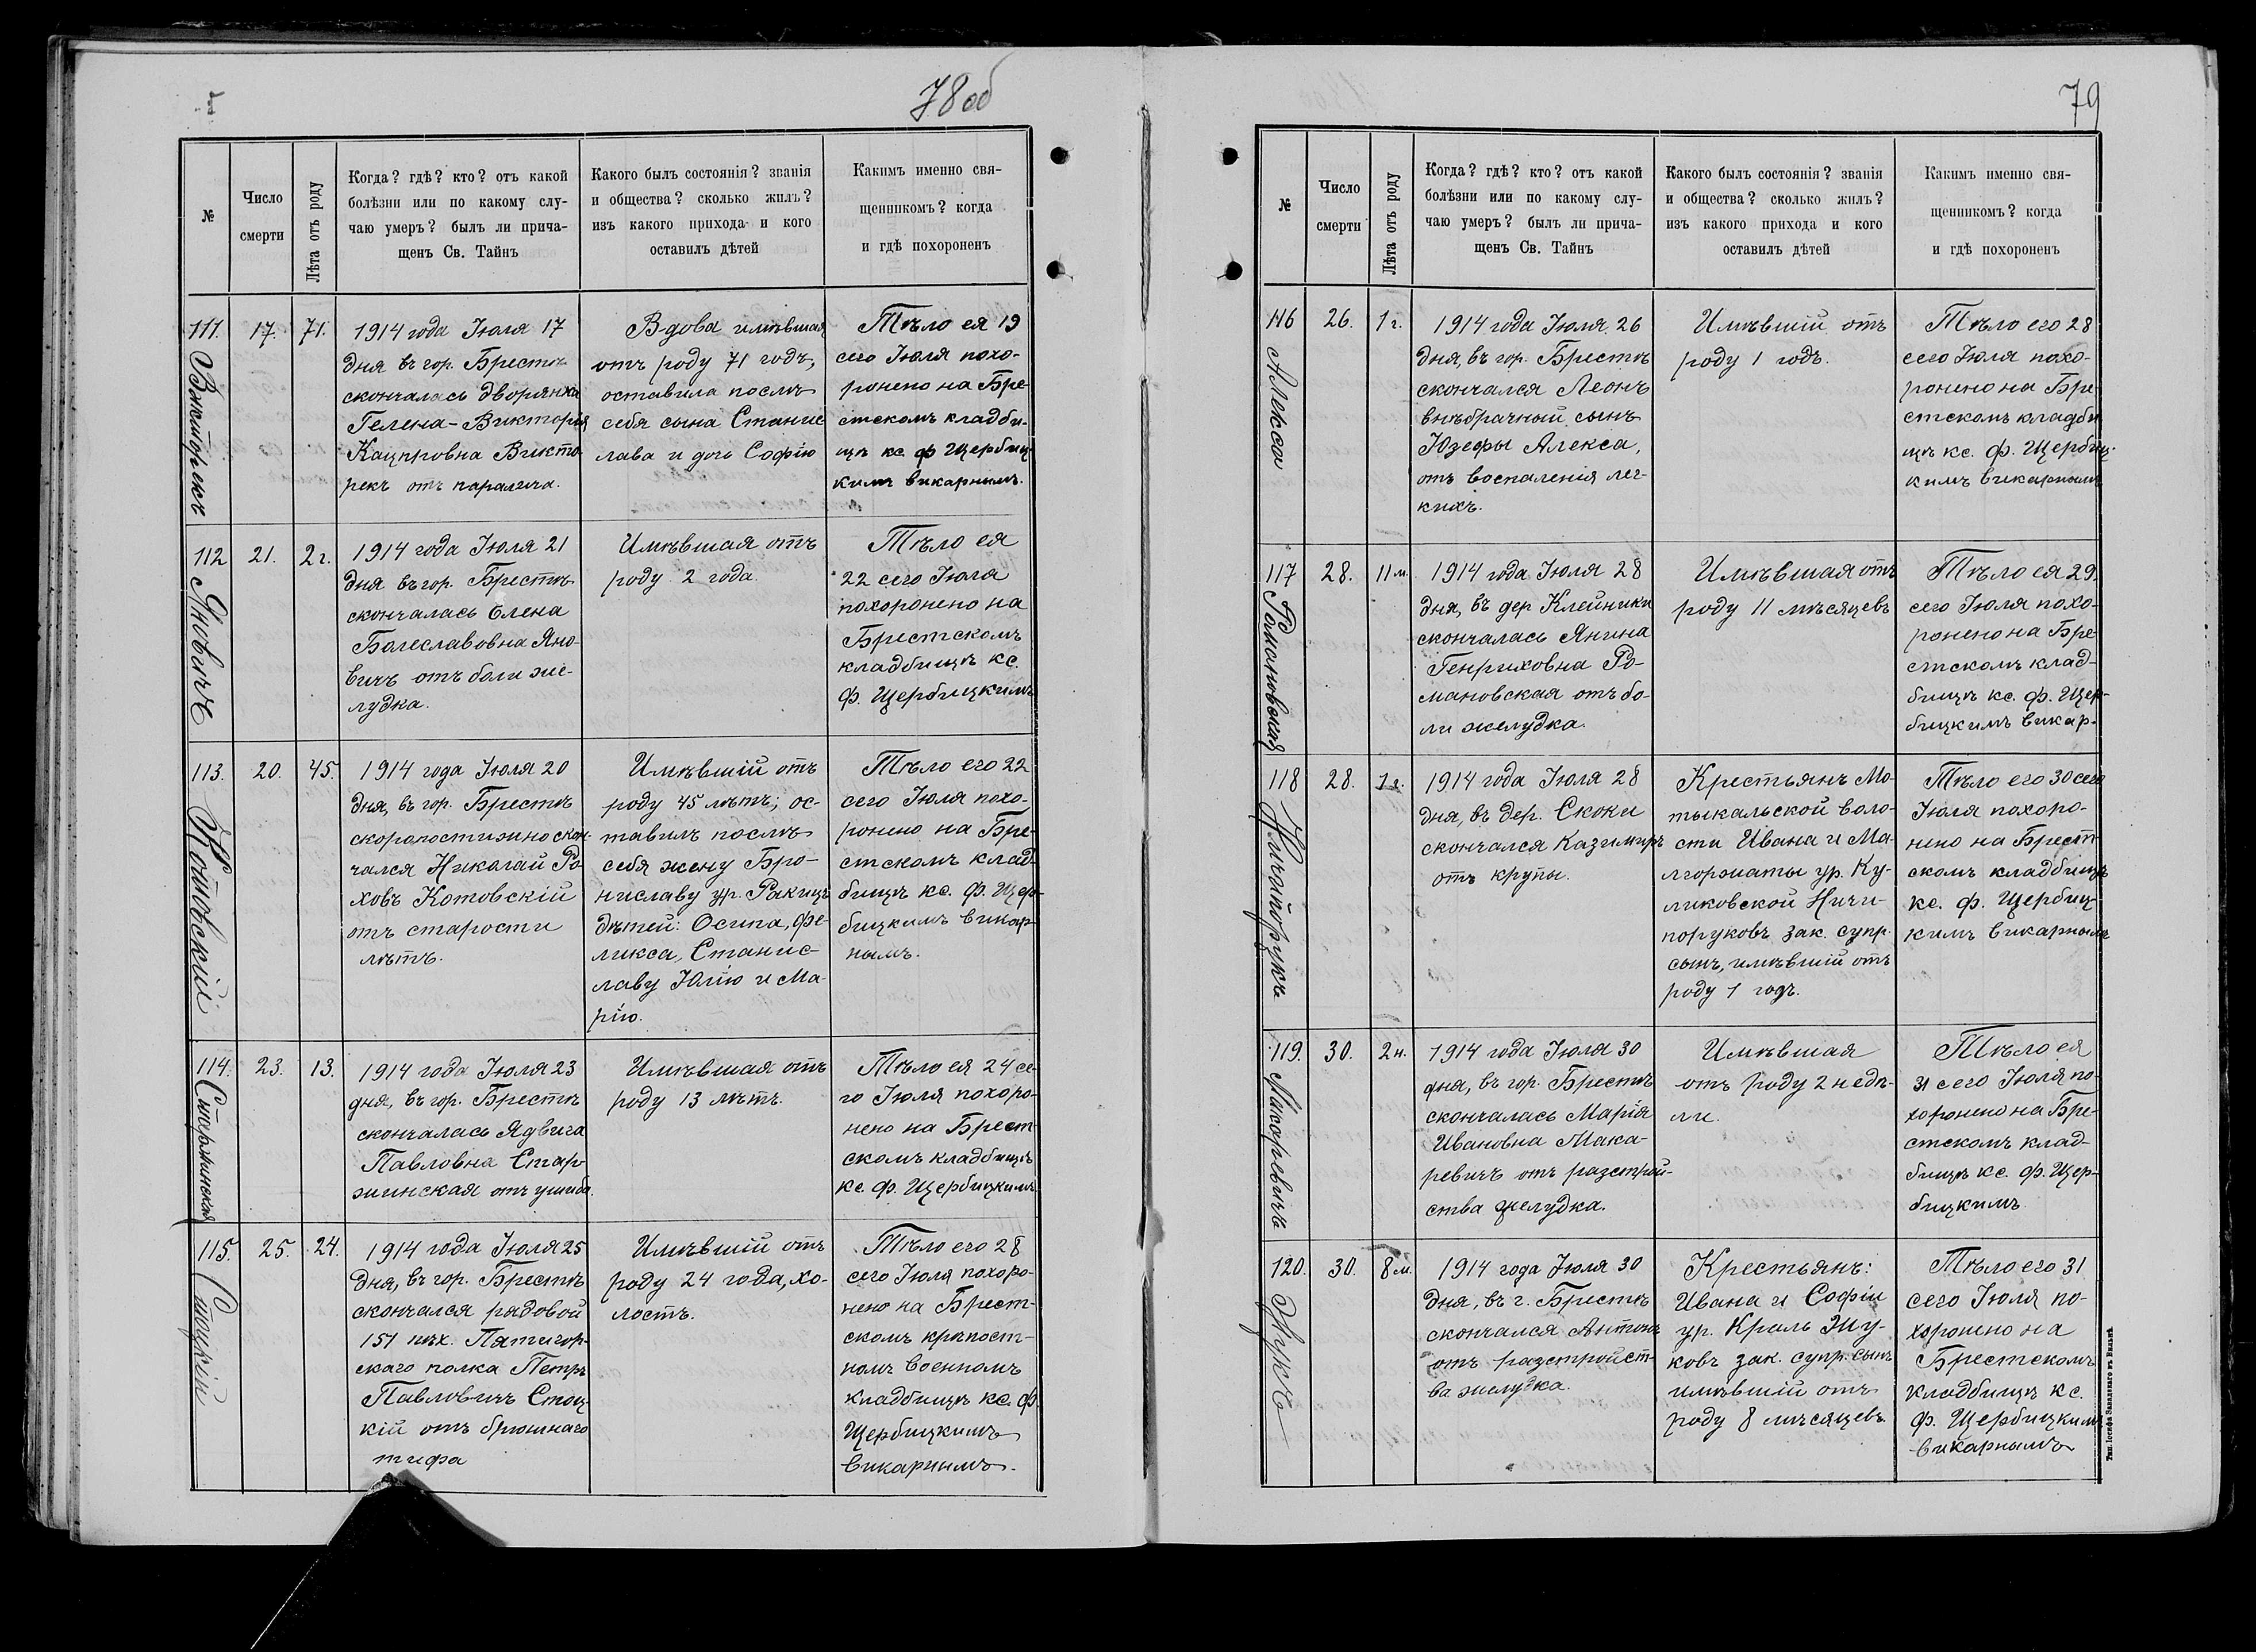 78 об
№
Число
смерти
Лѣта отъ роду
Когда? гдѣ? кто? отъ какой
болѣзни или по какому слу-
чаю умеръ? былъ ли прича-
щенъ Св. Тайнъ
Какого былъ состоянія? званія
и общества? сколько жилъ?
изъ какого прихода и кого
оставилъ дѣтей
Какимъ именно свя-
щенникомъ? когда
и гдѣ похороненъ
111.
Викторекъ
17.
71.
1914 года Іюля 17
дня въ гор. Брестѣ
скончалась дворянка
Гелена-Викторія
Кацпровна Викто-
рекъ отъ паралича.
Вдова имѣвшая
отъ роду 71 годъ,
оставила послѣ
себя сына Станис
лава и дочь Софію
Тѣло ея 19
сего Іюля похо-
ронено на Бре-
стскомъ кладби-
щѣ кс. ф Щербиц
кимъ викарнымъ.
112
Яновичъ
21.
2 г.
1914 года Іюля 21
дня въ гор. Брестѣ
скончалась Елена
Болеславовна Яно-
вичъ отъ боли же-
лудка.
Имѣвшая отъ
роду 2 года.
Тѣло ея
22 сего Іюля
похоронено на
Брестскомъ
кладбищѣ кс.
ф. Щербицкимъ
113.
Котовскій
20.
45.
1914 года Іюля 20
дня, въ гор. Брестѣ
скоропостижно скон-
чался Николай Ро-
ховъ Котовскій
отъ старости
лѣтъ.
Имѣвшій отъ
роду 45 лѣтъ; ос-
тавилъ послѣ
себя жену Бро-
ниславу ур. Ракицъ
дѣтей: Осипа, Фе-
ликса, Станис-
лаву Юлію и Ма-
рію.
Тѣло его 22
сего Іюля похо-
ронено на Бре-
стскомъ клад-
бищѣ кс. ф. Щер-
бицкимъ викар-
нымъ.
114.
Старжинская
23.
13.
1914 года Іюля 23
дня, въ гор. Брестѣ
скончалась Ядвига
Павловна Стар-
жинская отъ ушиба.
Имѣвшая отъ
роду 13 лѣтъ.
Тѣло ея 24 се-
го Іюля похоро-
нено на Брест
скомъ кладбищѣ
кс. ф. Щербицкимъ
115.
Стоцкій
25.
24.
1914 года Іюля 25
дня, въ гор. Брестѣ
скончался рядовой
151 пѣх. Пятигор-
скаго полка Петръ
Павловичъ Стоц-
кій отъ брюшнаго
тифа
Имѣвшій отъ
роду 24 года, хо-
лостъ.
Тѣло его 28
сего Іюля похоро-
нено на Брест-
скомъ крѣпост-
номъ военномъ
кладбищѣ кс. ф.
Щербицкимъ
викарнымъ.
79
№
Число
смерти
Лѣта отъ роду
Когда? гдѣ? кто? отъ какой
болѣзни или по какому слу-
чаю умеръ? былъ ли прича-
щенъ Св. Тайнъ
Какого былъ состоянія? званія
и общества? сколько жилъ?
изъ какого прихода и кого
оставилъ дѣтей
Какимъ именно свя-
щенникомъ? когда
и гдѣ похороненъ
116
Алекса
26.
1 г.
1914 года Іюля 26
дня, въ гор. Брестѣ
скончался Леонъ
внѣбрачный сынъ
Юзефы Алекса,
отъ воспаленія лег-
кихъ.
Имѣвшій отъ
роду 1 годъ.
Тѣло его 28
сего Іюля похо-
ронено на Бре-
стскомъ кладби
щѣ кс. ф. Щербиц-
кимъ викарнымъ
117
Романовская
28.
11 м.
1914 года Іюля 28
дня, въ дер Клейники
скончалась Янина
Генриховна Ро-
мановская отъ бо-
ли желудка.
Имѣвшая отъ
роду 11 мѣсяцевъ
Тѣло ея 29
сего Іюля похо-
ронено на Бре-
стскомъ клад-
бищѣ кс. ф. Щер-
бицкимъ викар-
118
Ничипорукъ
28.
1 г.
1914 года Іюля 28
дня, въ дер. Скоки
скончался Казимиръ
отъ крупы.
Крестьянъ Мо-
тыкальской воло-
сти Ивана и Ма-
лгоржаты ур. Ку-
ликовской Ничи-
поруковъ зак. супр.
сынъ, имѣвшій отъ
роду 1 годъ.
Тѣло его 30 сего
Іюля похоро-
нено на Брест-
скомъ кладбищѣ
кс. ф. Щербиц-
кимъ викарнымъ
119.
Макаревичъ
30.
2 н.
1914 года Іюля 30
дня, въ гор. Брестѣ
скончалась Марія
Ивановна Мака-
ревичъ отъ разстрой-
ства желудка.
Имѣвшая
отъ роду 2 недѣ-
ли.
Тѣло ея
31 сего Іюля по-
хоронено на Бре-
стскомъ клад-
бищѣ кс. ф. Щер-
бицкимъ
120.
Жукъ
30.
8 м.
1914 года Іюля 30
дня, въ г. Брестѣ
скончался Антонъ
отъ разстройст-
ва желудка.
Крестьянъ:
Ивана и Софіи
ур. Краль Жу-
ковъ зак. супр. сынъ
имѣвшій отъ
роду 8 мѣсяцевъ
Тѣло его 31
сего Іюля по-
хоронено на
Брестскомъ
кладбищѣ кс.
ф. Щербицкимъ
викарнымъ
Тип. Іосифа Завадзкаго въ Вильнѣ.